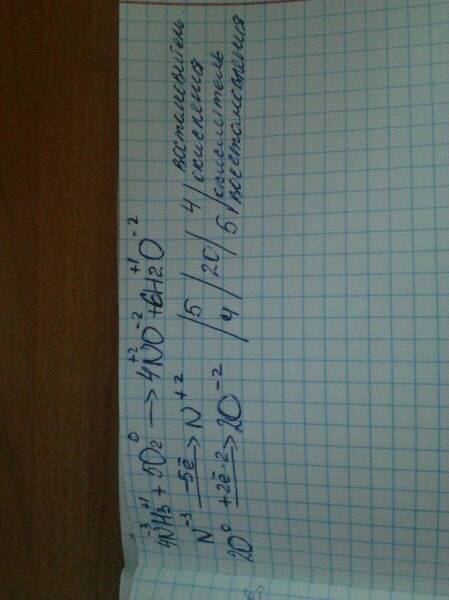 4N⁻³H₃⁺¹ + 5O₂⁰ → 4N⁺²O⁻² + 6H₂⁺¹O⁻²
N⁻³ -5ē→ N⁺² / 5 / 20 / 4 / востановитель окисления
2O⁰ +2ē·2→ 2O⁻² / 4 / 5 / окислитель восстановления